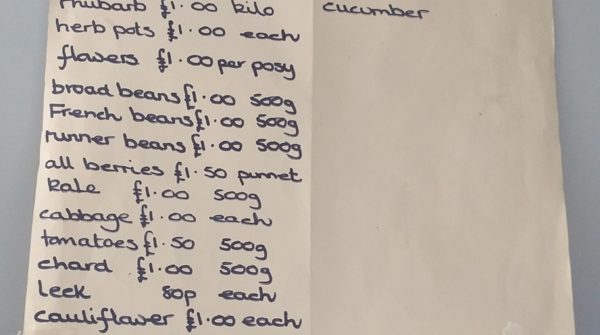 rhubarb £1.00 kilo
herb pots £1.00 each
flowers £1.00 per posy
broad beans £1.00 500g
French beans £1.00 500g
runner beans £1.00 500g
all berries £1.50 punnet
kale £1.00 500g
cabbage £1.00 each
tomatoes £1.50 500g
chard £1.00 500g
leek 80p each
cauliflower £1.00 each
cucumber